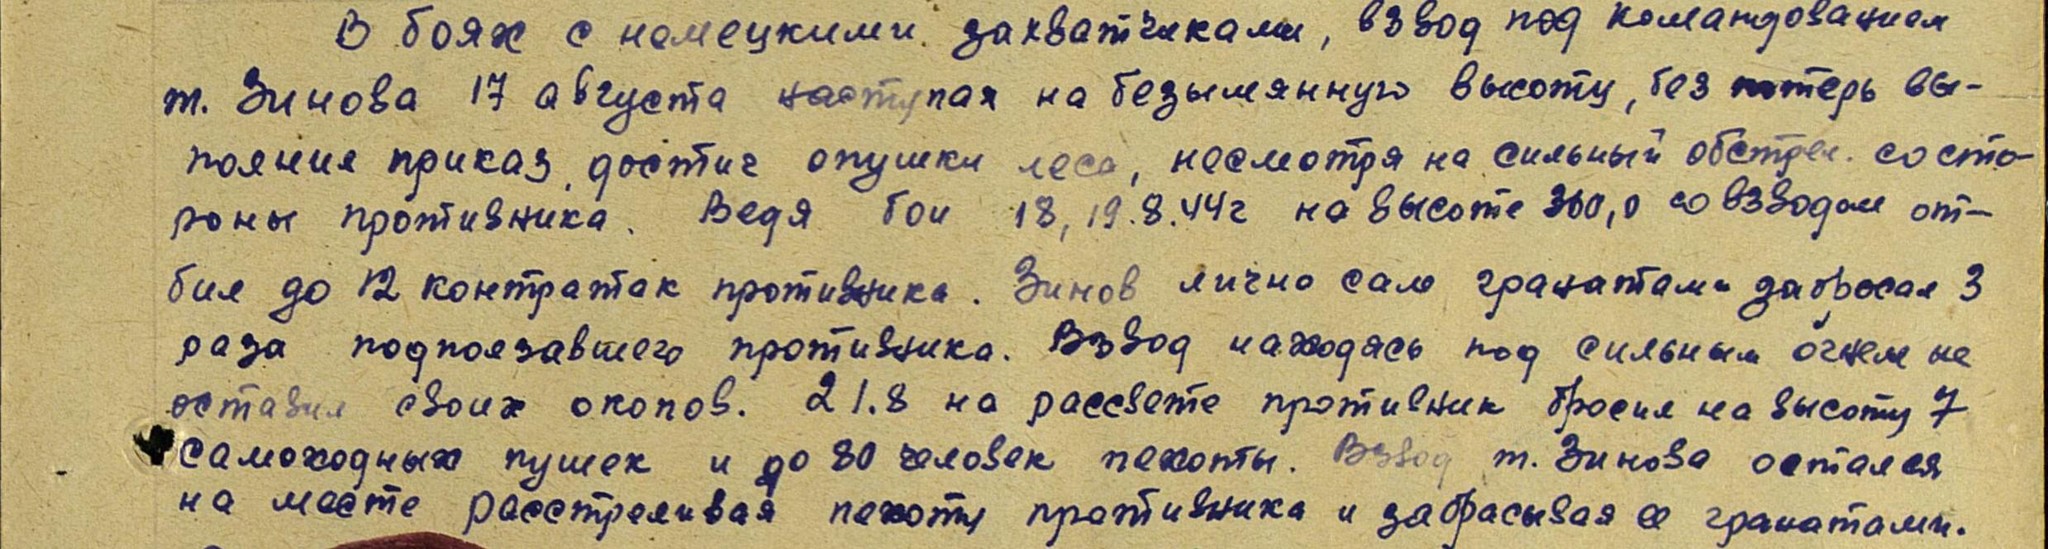 В боях с немецкими захватчиками, взвод под командованием
т. Зинова 17 августа наступая на безымянную высоту, без потерь вы-
полняя приказ, достиг опушки леса, несмотря на сильный обстрел со сто-
роны противника. Ведя бои 18, 19.8.44г на высоте 300,0 со взводом от-
бил до 12 контратак противника. Зинов лично сам гранатами забросал 3
раза подползавшего противника. Взвод находясь под сильным огнем не
оставил своих окопов. 21.8 на рассвете противник бросил на высоту 7
самоходных пушек и до 80 человек пехоты. Взвод т. Зинова остался
на месте расстреливая пехоту противника и забрасывая ее гранатами.